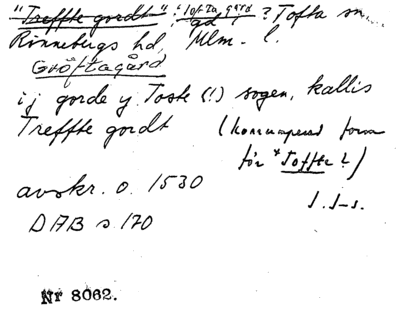 "Treffte gordt" : Tofta gård ? Tofta sn.
gd
Rönnebergs hd, Mlm. l.
Gröftagård
ij gorde y Toste (!) sogen, kallis
Treffte gordt (korrumperad form
för *Toffte?)
avskr. o. 1530 J. J-s.
DAB s. 170
Nr 8062.